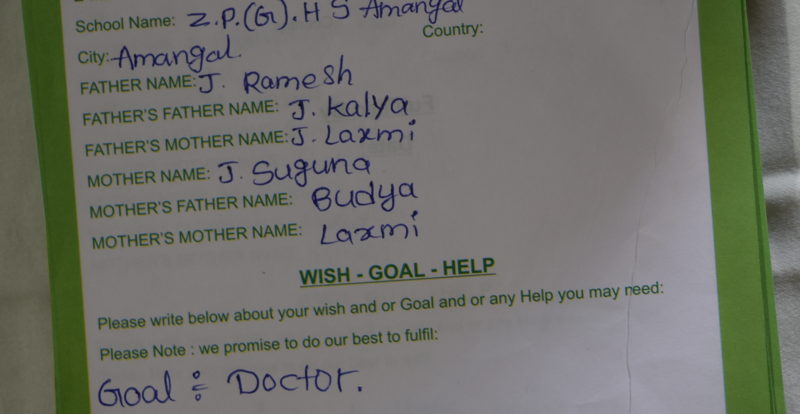 School Name: Z.P.(G).H S Amangal
City: Amangal. Country:
FATHER NAME: J. Ramesh
FATHER'S FATHER NAME: J. Kalya
FATHER'S MOTHER NAME: J. Laxmi
MOTHER NAME: J. Suguna
MOTHER'S FATHER NAME: Budya
MOTHER'S MOTHER NAME: Laxmi
WISH - GOAL - HELP
Please write below about your wish and or Goal and or any Help you may need:
Please Note : we promise to do our best to fulfil:
Goal : Doctor.